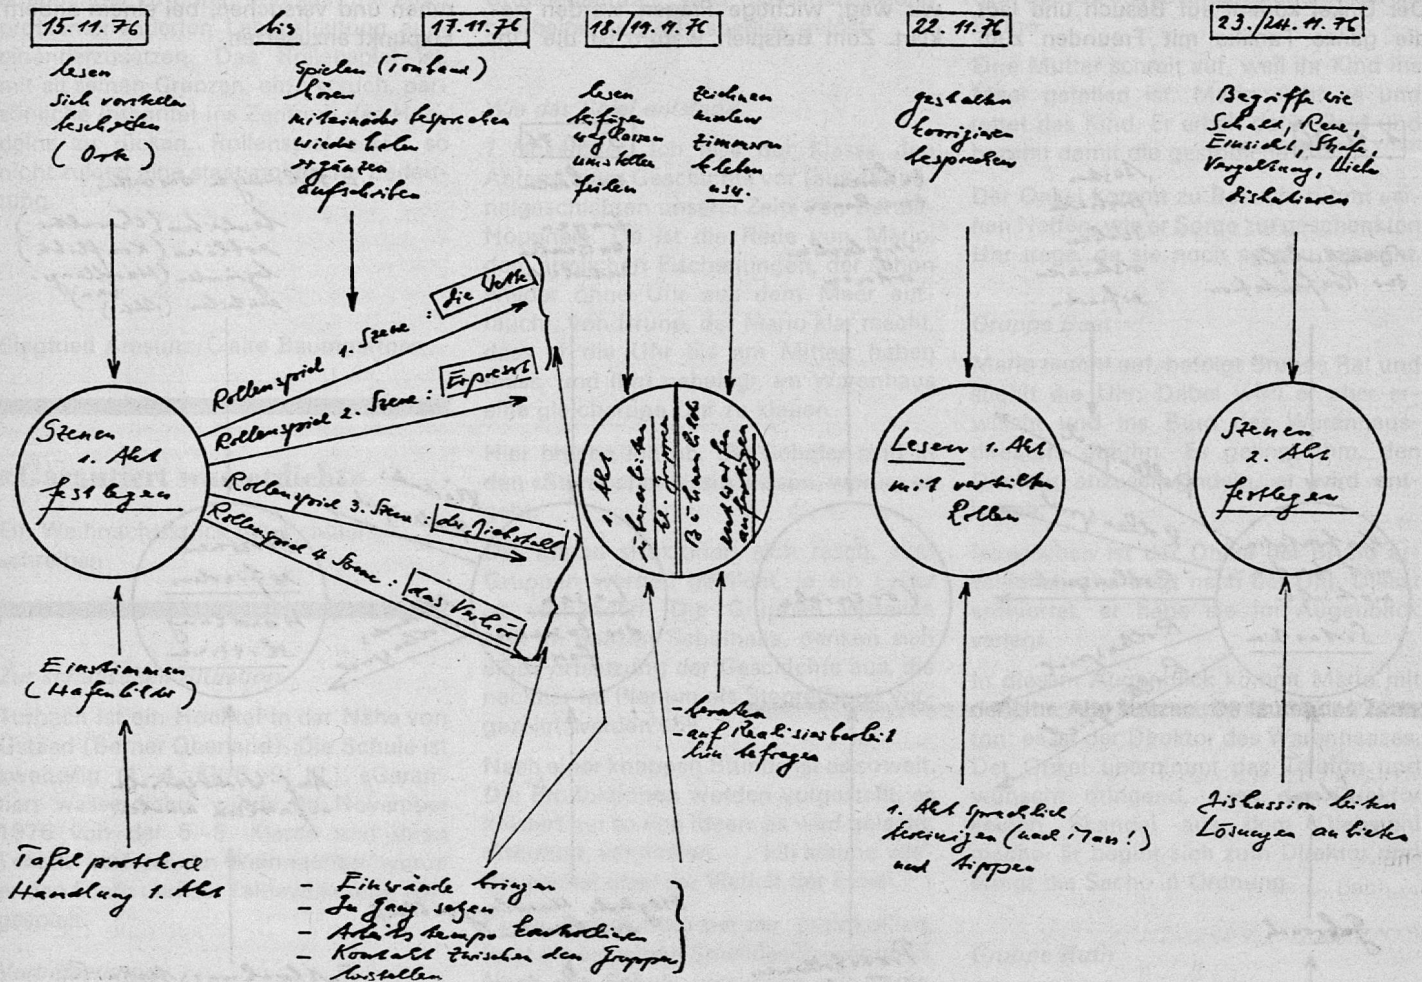 15.11.76
bis
17.11.76
18./19.11.76
22.11.76
23./24.11.76
lesen
sich vorstellen
beschreiben
(Orte)
spielen (Tonband)
hören
miteinander besprechen
wiederholen
ergänzen
aufschreiben
lesen
beifügen
weglassen
umstellen
feilen
zeichnen
malen
zimmern
kleben
usw.
gestalten
korrigieren
besprechen
Begriffe wie
Schuld, Reue,
Einsicht, Strafe,
Vergebung, Liebe
diskutieren
Szenen
1. Akt
festlegen
Rollenspiel 1. Szene: die Wette
Rollenspiel 2. Szene: Erpresst
Rollenspiel 3. Szene: der Diebstahl
Rollenspiel 4. Szene: das Verhör
1. Akt
überarbeiten
kl. Gruppen
Bühnenbild
anfertigen
Lesen 1. Akt
mit verteilten
Rollen
Szenen
2. Akt
festlegen
Einstimmen
(Hafenbilder)
Tafelprotokoll
Handlung 1. Akt
Einwände bringen
- In Gang setzen
- Arbeitstempo kontrollieren
- Kontakt zwischen den Gruppen
herstellen
- beraten
- auf Realisierbarkeit
hin befragen
1. Akt sprachlich
bereinigen (nach Mass!)
und tippen
Diskussion leiten
Lösungen anbieten